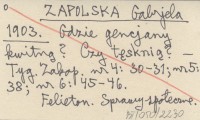 ZAPOLSKA Gabrjela
1903. Gdzie gencjany
kwitną? Czy tęsknię? –
Tyg. Zakop. nr 4: 30-31; nr 5:
38; nr 6: 45-46.
Felieton. Sprawy społeczne.